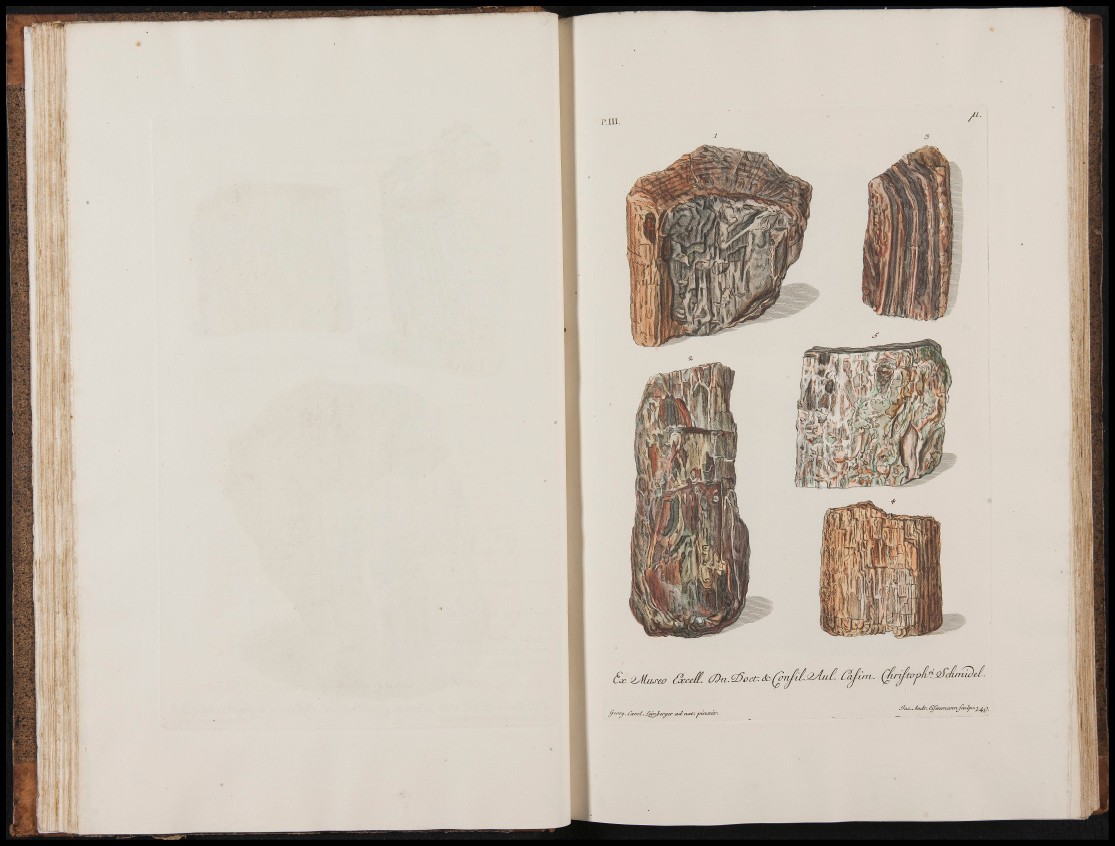 P.III.
μ.
1
3
5
2
4
Ex Museo Excell. Dn. Doct. & Consil. Aul. Casim. Christophi Schmidel.
Georg. Leonh. ad nat. pinxit.
Jac. Andr. Eisenmann sculps.